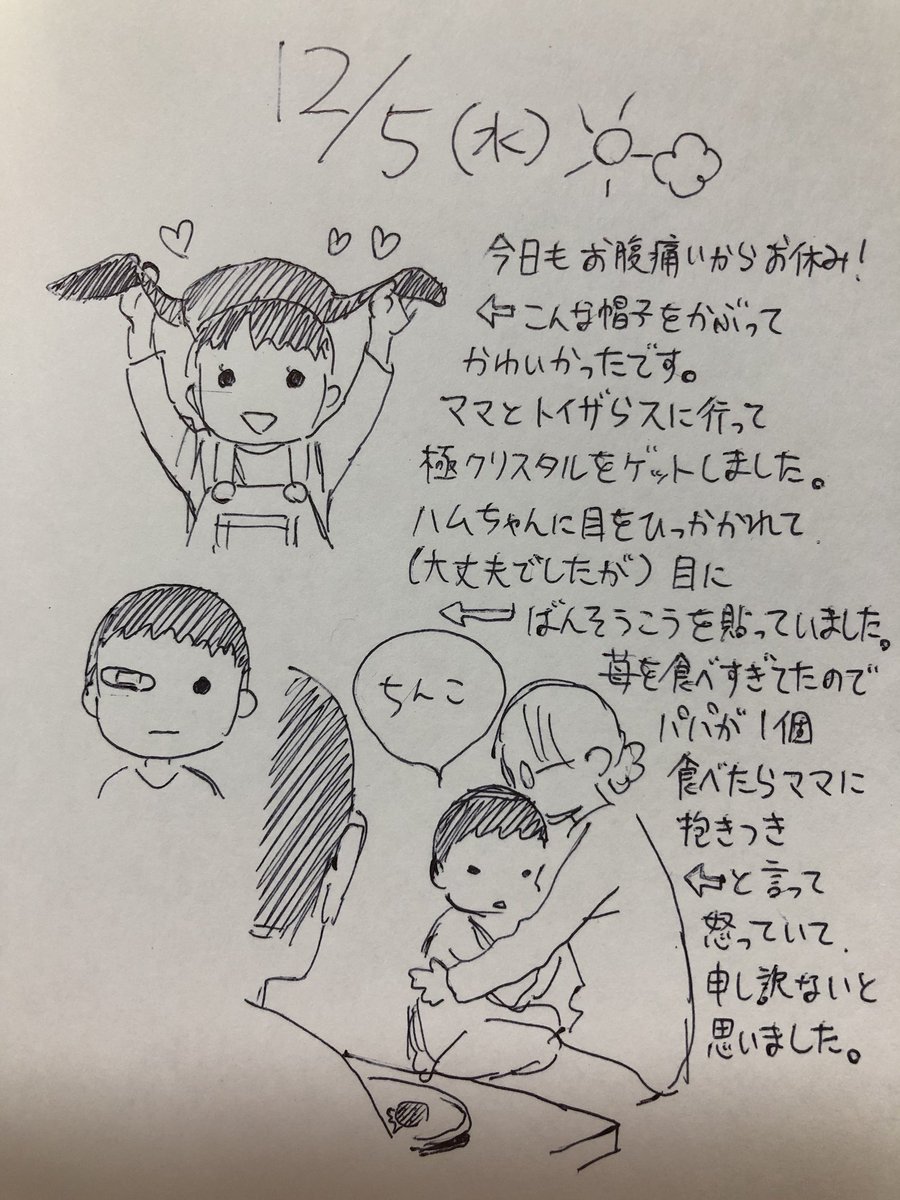 12/5(水)
今日もお腹痛いからお休み!
⇦こんな帽子をかぶって
かわいかったです。
ママとトイザらスに行って
極クリスタルをゲットしました。
ハムちゃんに目をひっかかれて
(大丈夫でしたが)目に
⇦ばんそうこうを貼っていました。
苺を食べすぎてたので
パパが1個
食べたらママに
抱きつき
⇦と言って
怒っていて
申し訳ないと
思いました。
ちんこ